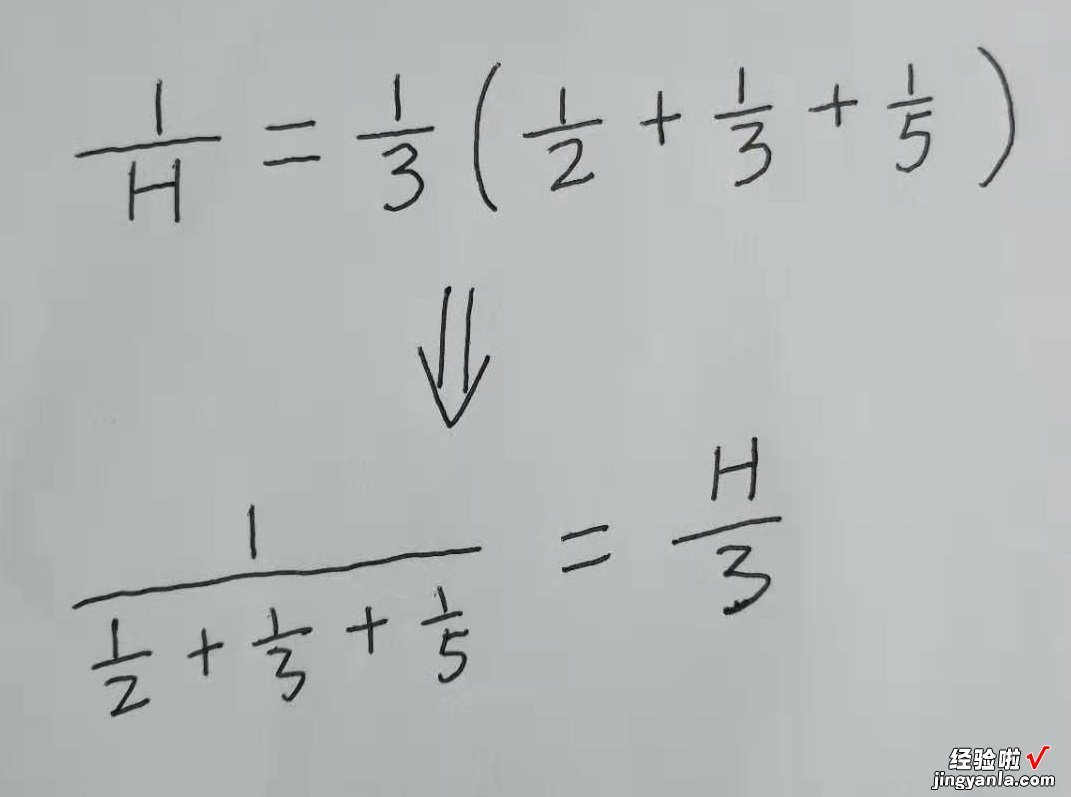 1/H = 1/3 ( 1/2 + 1/3 + 1/5 )
⇓
1/(1/2 + 1/3 + 1/5) = H/3
经验啦√
jingyanla.com